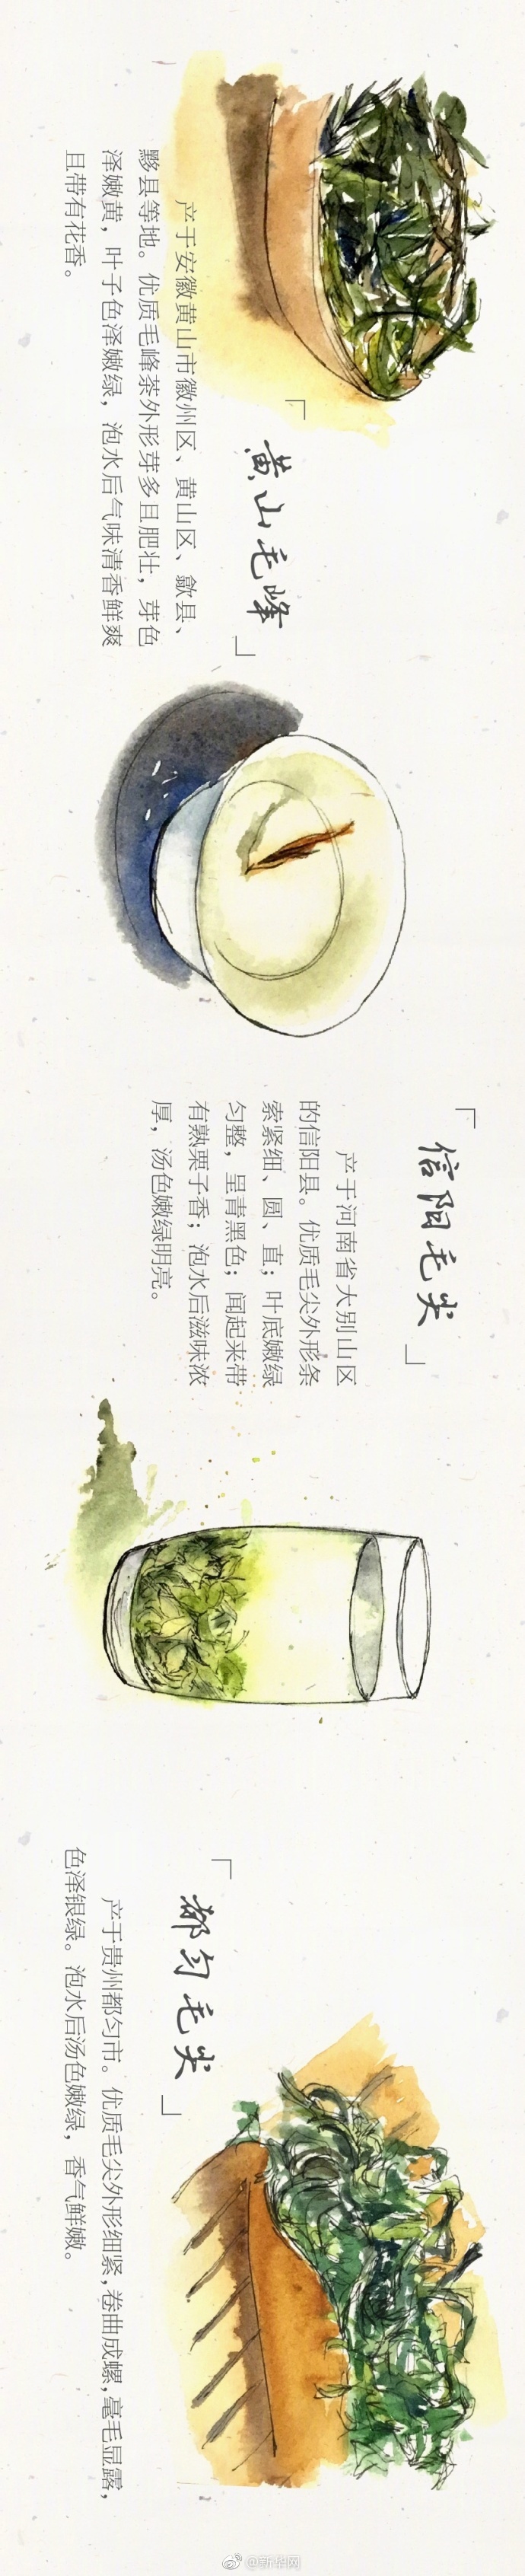 「黄山毛峰」
产于安徽黄山市徽州区、黄山区、歙县、
黟县等地。优质毛峰茶外形芽多且肥壮，芽色
泽嫩黄，叶子色泽嫩绿，泡水后气味清香鲜爽
且带有花香。
「信阳毛尖」
产于河南省大别山区
的信阳县。优质毛尖外形条
索紧细、圆、直；叶底嫩绿
匀整，呈青黑色；闻起来带
有熟栗子香；泡水后滋味浓
厚，汤色嫩绿明亮。
「都匀毛尖」
产于贵州都匀市。优质毛尖外形细紧，卷曲成螺，毫毛显露，
色泽银绿。泡水后汤色嫩绿，香气鲜嫩。
@新华网